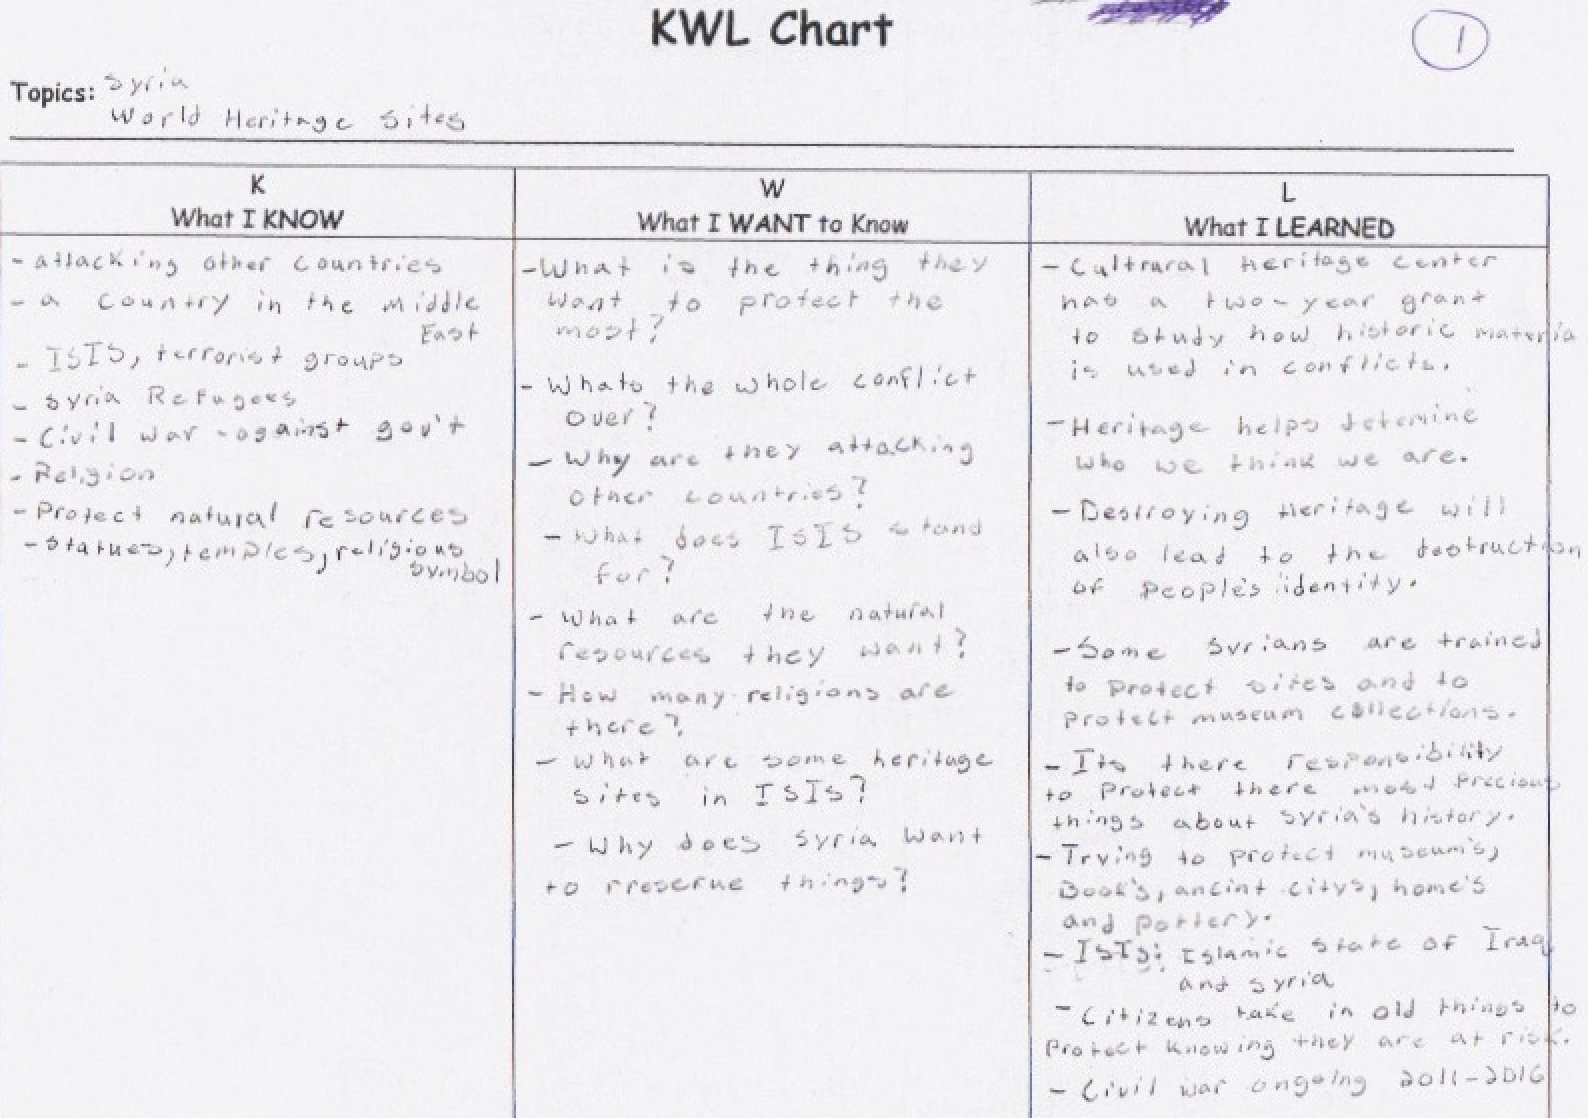 KWL Chart
1
Topics: Syria
World Heritage Sites
K
What I KNOW
- attacking other countries
- a country in the Middle
East
- ISIS, terrorist groups
- Syria Refugees
- Civil war - against gov't
- Religion
- Protect natural resources
- Statues, temples, religious
symbol
W
What I WANT to Know
- What is the thing they
want to protect the
most?
- Whats the whole conflict
over?
- Why are they attacking
other countries?
- What does ISIS stand
for?
- What are the natural
resources they want?
- How many religions are
there?
- What are some heritage
sites in ISIS?
- Why does Syria want
to preserve things?
L
What I LEARNED
- Cultrural heritage center
has a two-year grant
to study how historic materia
is used in conflicts.
- Heritage helps detemine
who we think we are.
- Destroying heritage will
also lead to the destruction
of people's identity.
- Some Syrians are trained
to protect sites and to
protect museum collections.
- Its there responsibility
to protect there most precious
things about Syria's history.
- Trying to protect museum's,
Book's, ancint citys, home's
and pottery.
- ISIS: Islamic State of Iraq
and Syria
- Citizens take in old things to
protect knowing they are at risk.
- Civil war ongoing 2011-2016